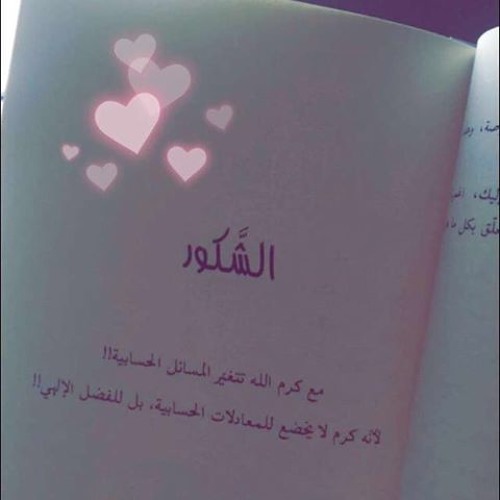 الشَّكور
مع كرم الله تتغير المسائل الحسابية!!
لأنه كرم لا يخضع للمعادلات الحسابية، بل للفضل الإلهي!!